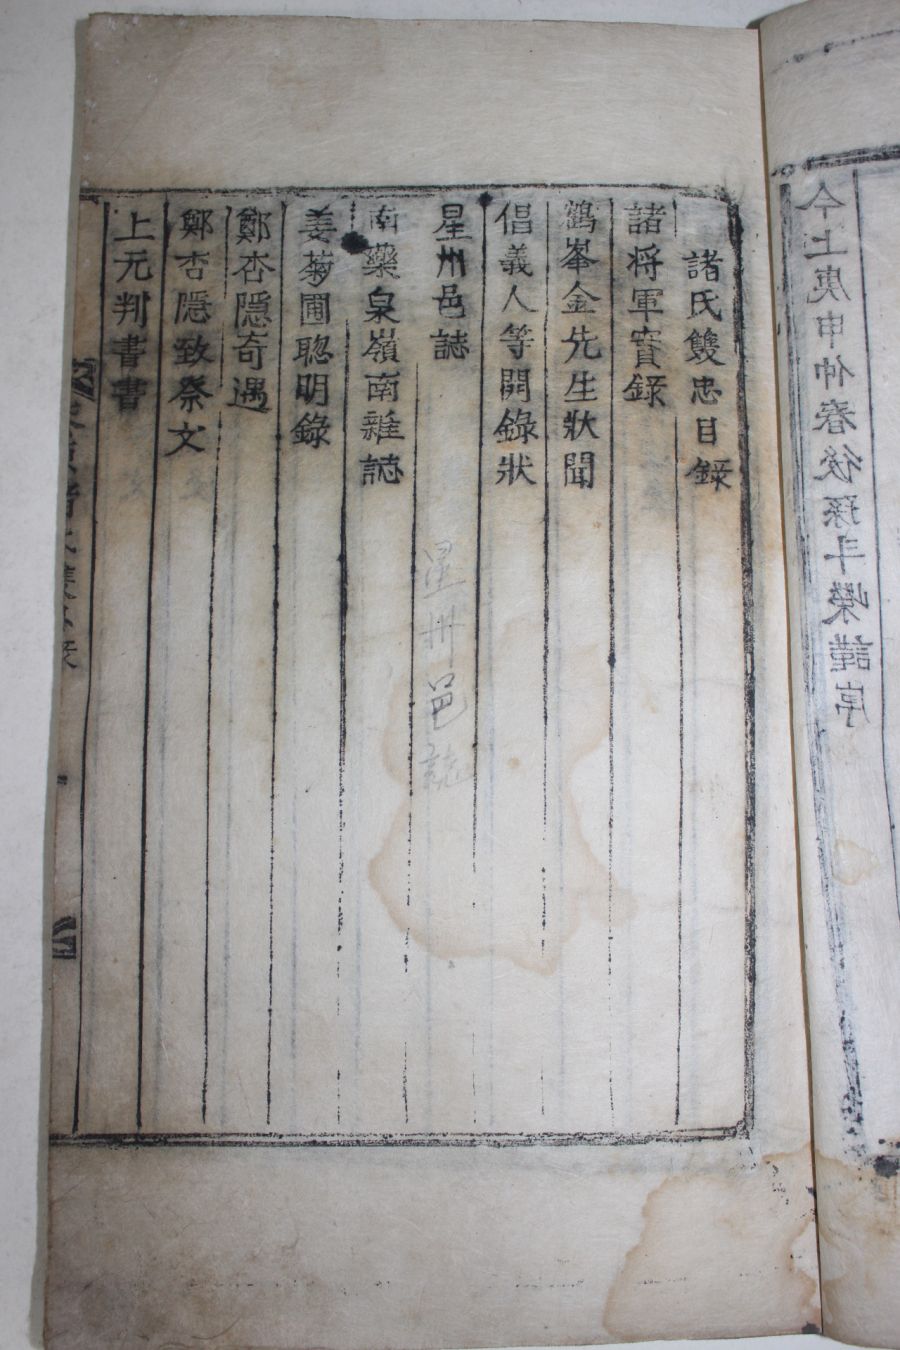 今上庚申仲春後孫斗嶸謹序
諸氏雙忠目録
諸将軍實録
鶴峯金先生狀聞
倡義人等開錄狀
星州邑誌
南藥泉嶺南雜誌
姜菊圃聦明錄
鄭杏隱奇遇
鄭杏隱致祭文
上元判書書
星州邑誌